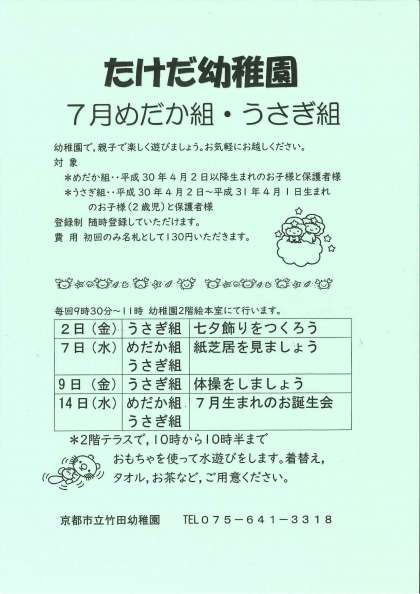 たけだ幼稚園
７月めだか組・うさぎ組
幼稚園で，親子で楽しく遊びましょう。お気軽にお越しください。
対 象
＊めだか組‥平成30年4月2日以降生まれのお子様と保護者様
＊うさぎ組‥平成30年4月2日～平成31年4月1日生まれ
のお子様(2歳児)と保護者様
登録制 随時登録していただけます。
費 用 初回のみ名札として130円いただきます。
毎回9時30分～11時 幼稚園2階絵本室にて行います。
2日(金) うさぎ組 七夕飾りをつくろう
7日(水) めだか組 紙芝居を見ましょう
うさぎ組
9日(金) うさぎ組 体操をしましょう
14日(水) めだか組 7月生まれのお誕生会
うさぎ組
＊2階テラスで，10時から10時半まで
おもちゃを使って水遊びをします。着替え，
タオル，お茶など，ご用意ください。
京都市立竹田幼稚園 TEL075-641-3318